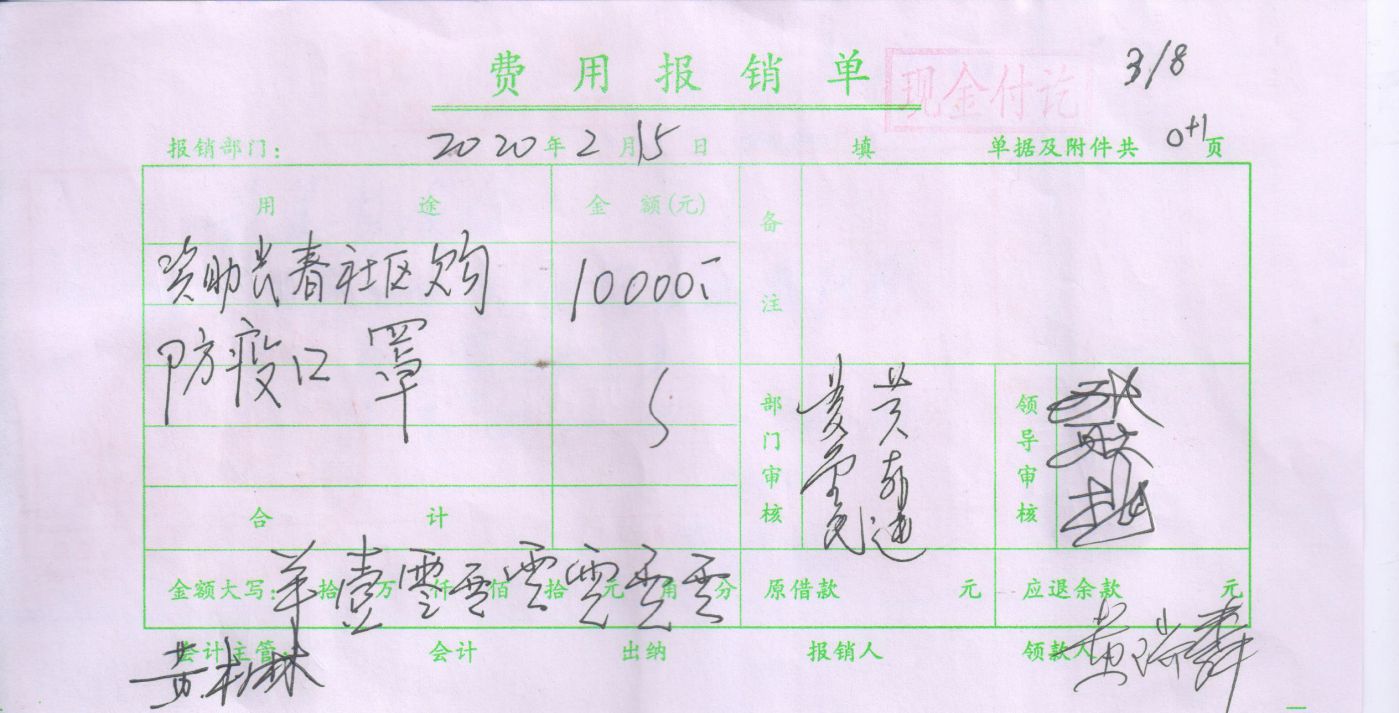 费用报销单
现金付讫
3/8
报销部门: 2020年2月15日 填 单据及附件共0+1页
用途 金额(元) 备注
资助长春社区购 10000.-
防疫口罩
部门审核 领导审核
合计
金额大写: 拾壹万零仟零佰零拾零元零角零分 原借款 元 应退余款 元
会计主管: 会计 出纳 报销人 领款人